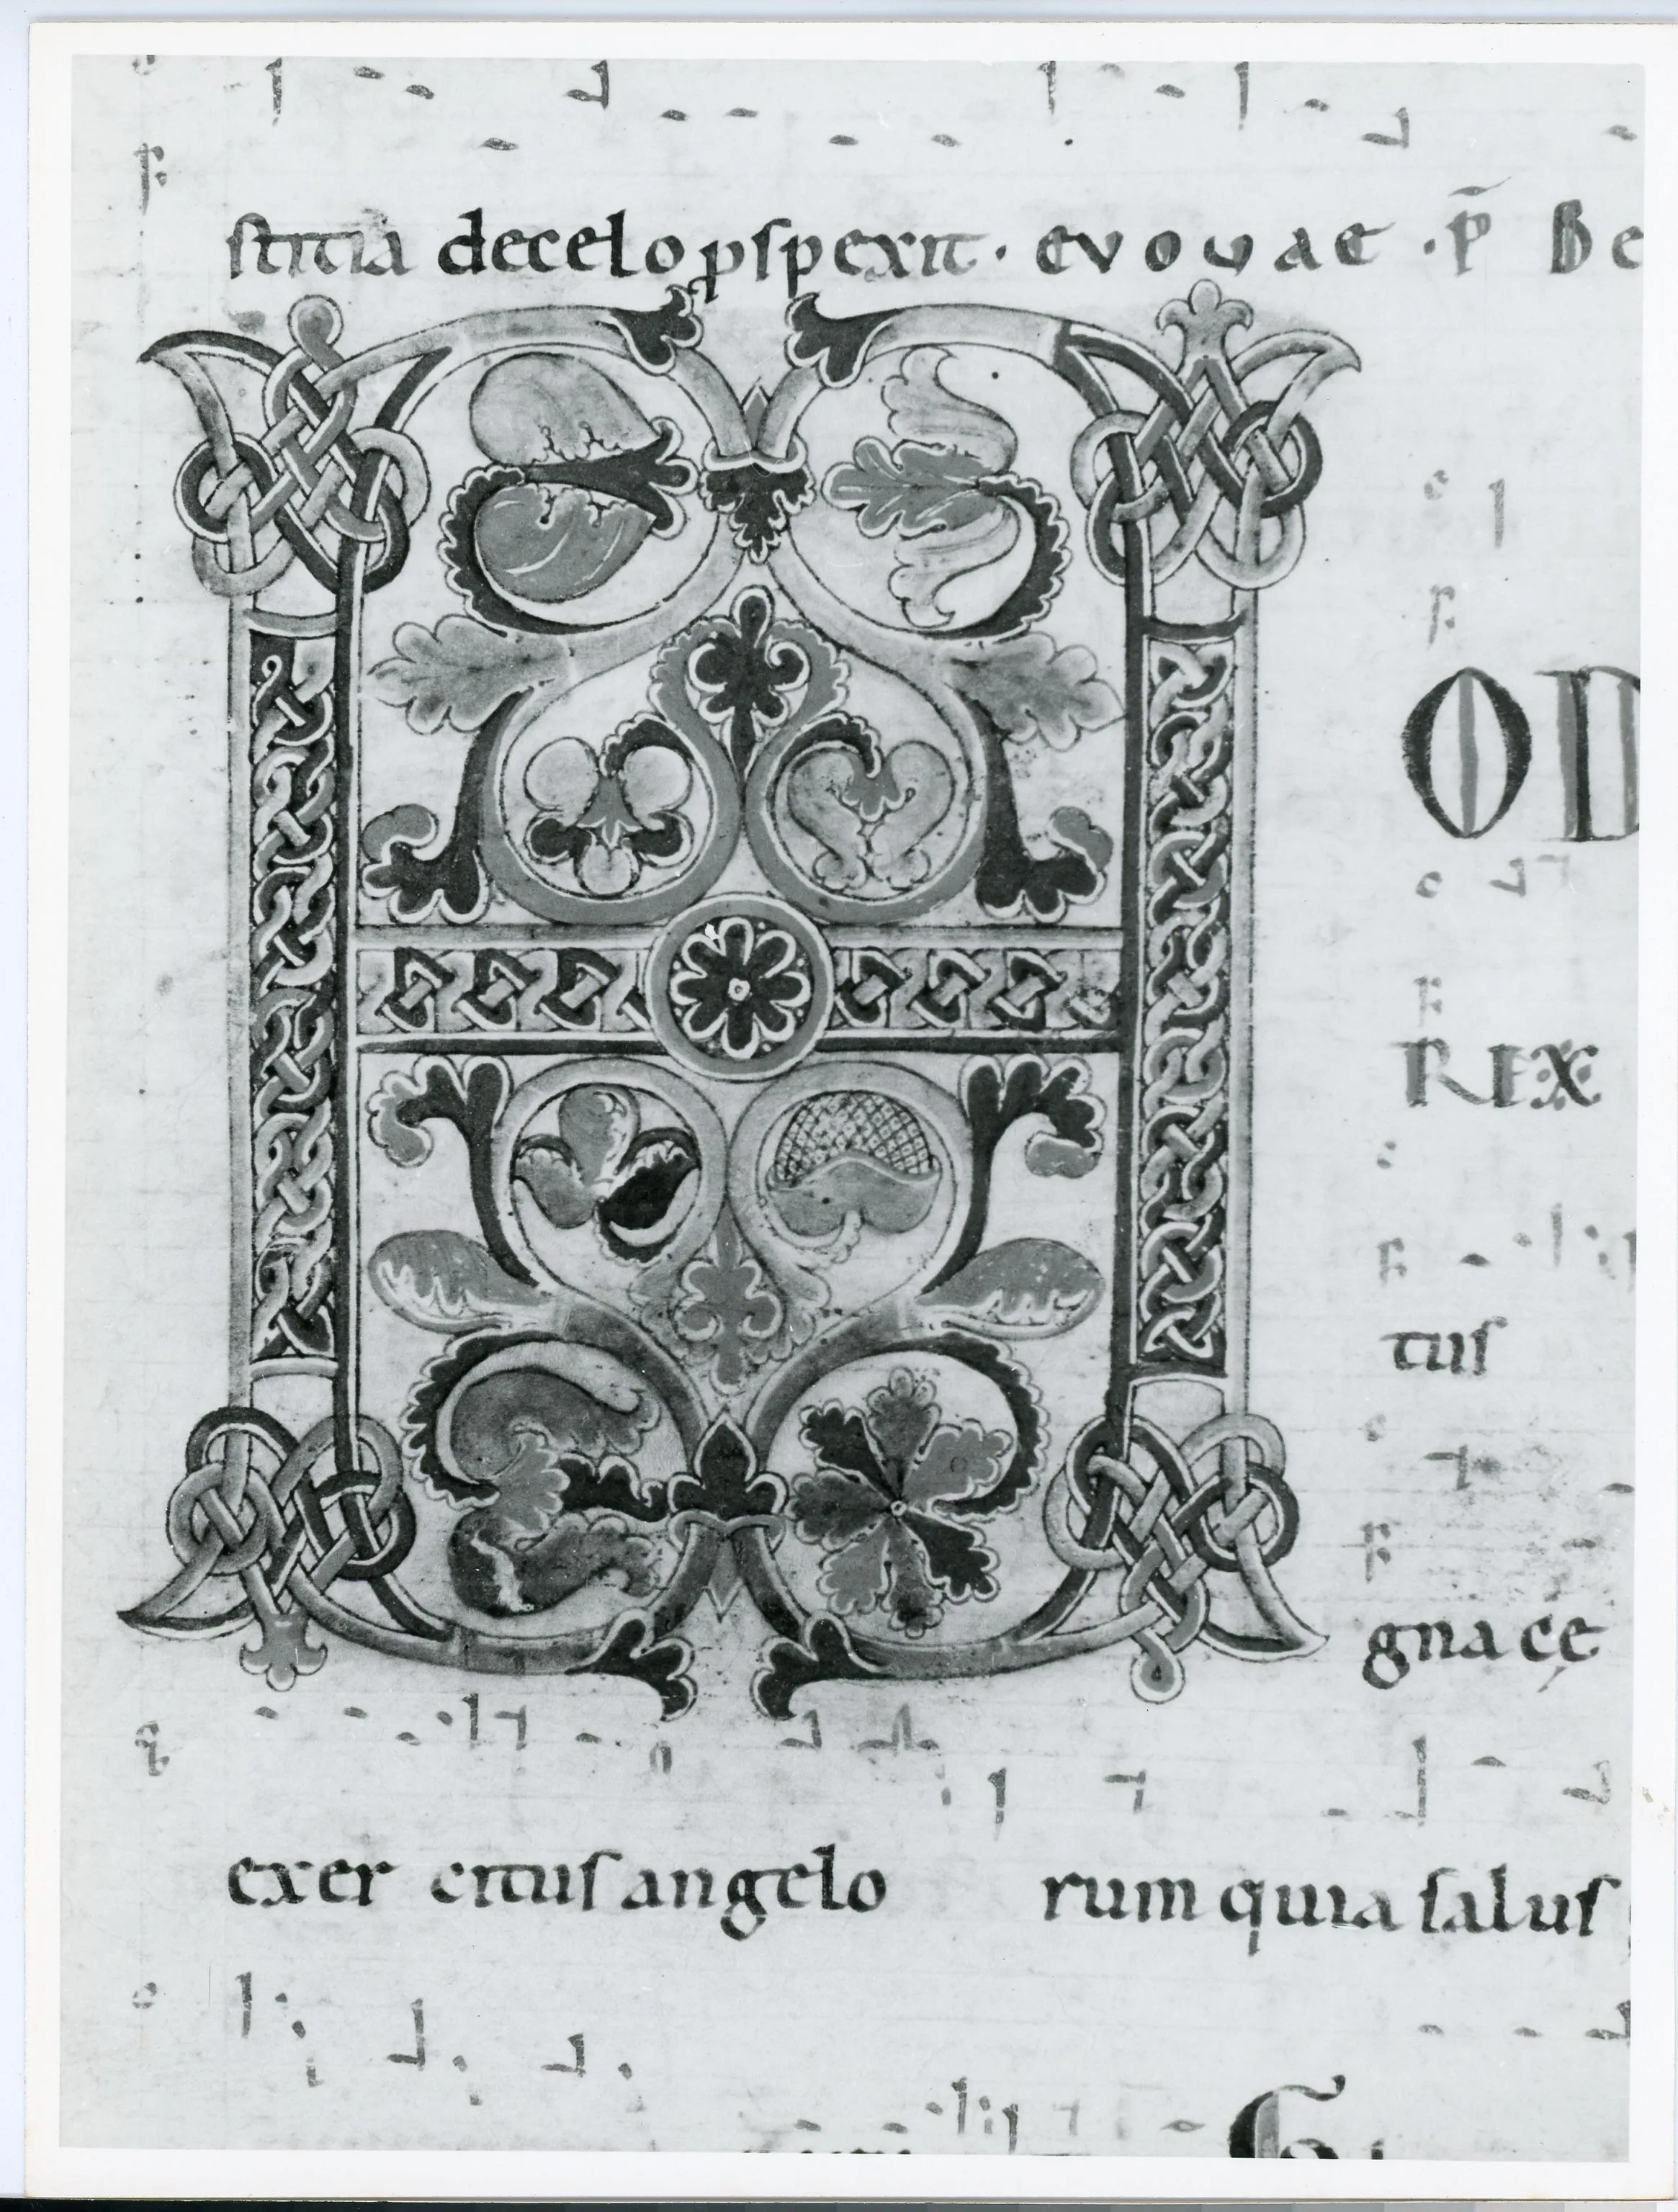 stitia decelo ꝓspexit · evovae · p̄ Be
H
OD
REX
tus
gnace
exer citus angelo rum quia salus